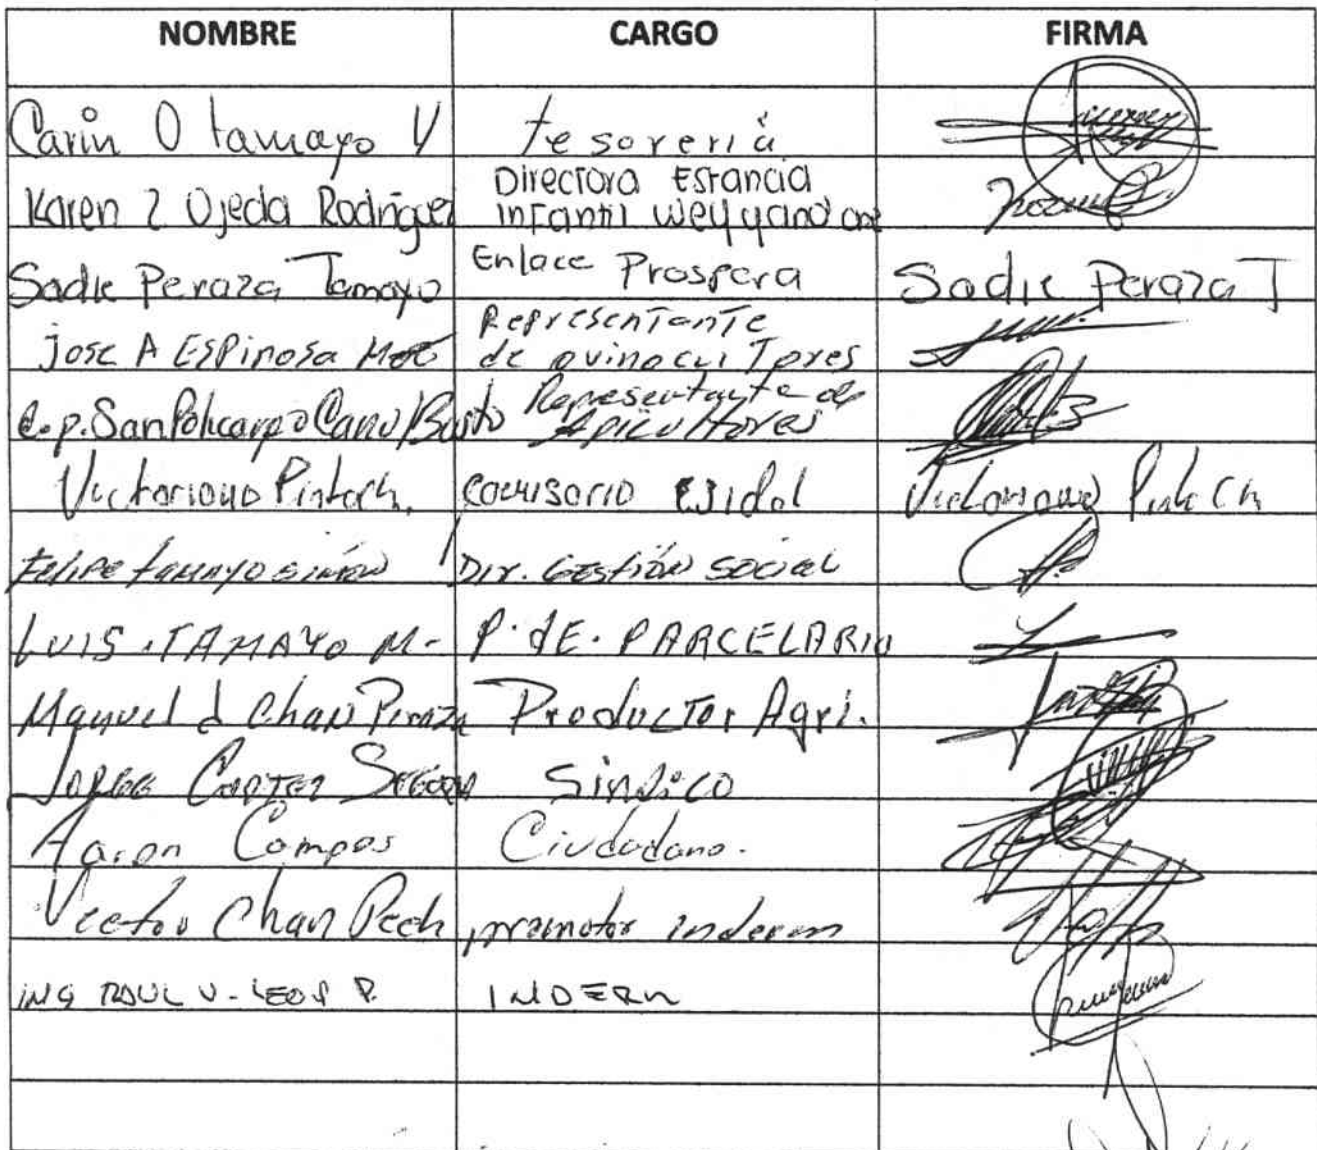 NOMBRE CARGO FIRMA
Carin O tamayo V tesoreria
Karen Z Ojeda Rodriguez Directora Estancia
infantil
Sadie Peraza Tamayo Enlace Prospera Sadie Peraza T
jose A Espinosa Representante
de ovinocultores
c.p. San Policarpo Cano Basto Representante de
Apicultores
Victoriano Pintoch. comisario Ejidal Victoriano Pinto Ch
Felipe tamayo Dir. Gestión social
LUIS . TAMAYO M- P. dE. PARCELARIO
Manuel J Chan Peraza Productor Agri.
Jorge Carter Segovia Sindico
Aaron Campos Ciudadano.
Victor Chan Pech promotor inderm
ING RAUL V. LEON P. INDERM